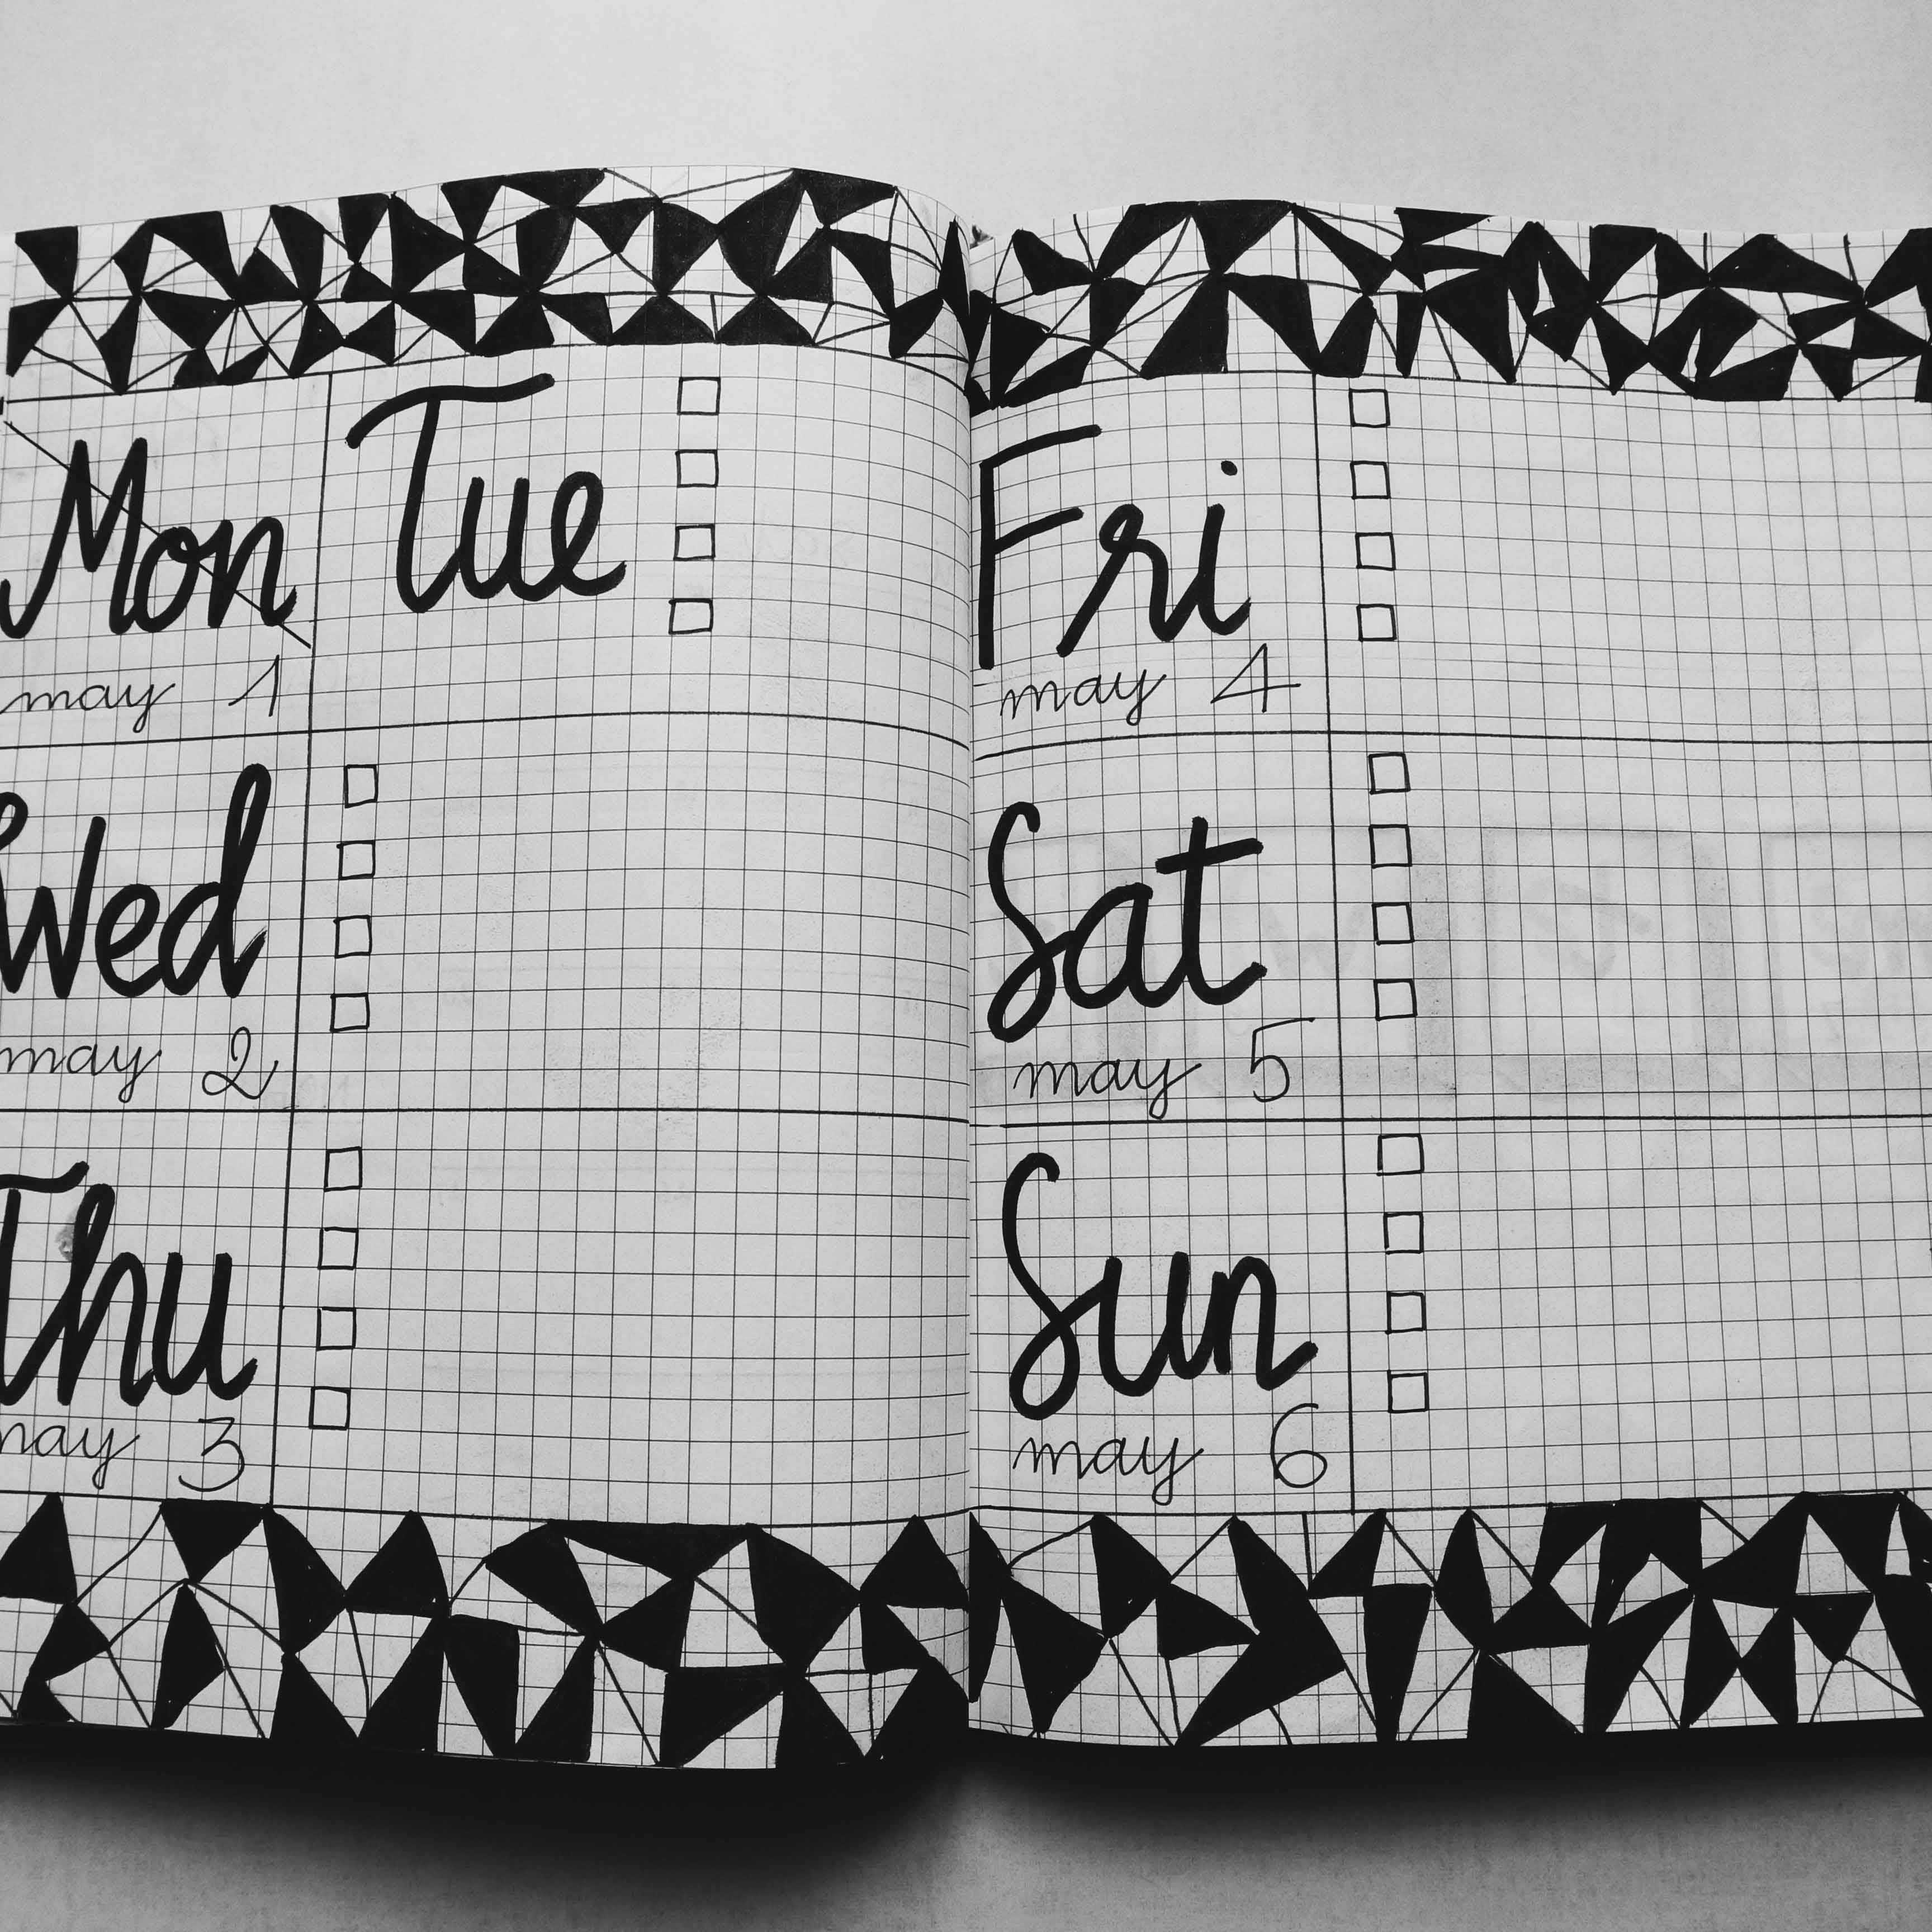 Mon
may 1
Tue
Wed
may 2
Thu
may 3
Fri
may 4
Sat
may 5
Sun
may 6